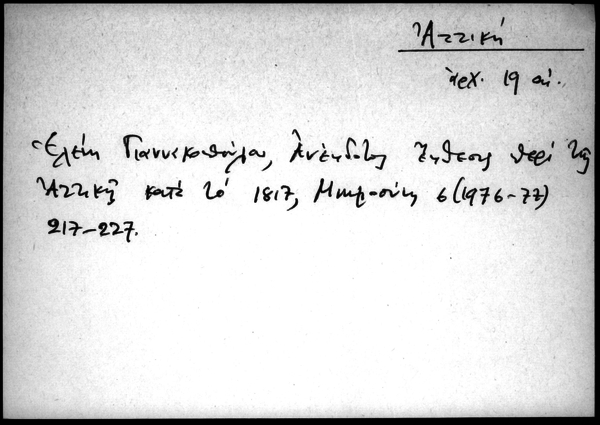 Ἀττική
ἀρχ. 19 αἰ.
Ἑλένη Γιαννακοπούλου, Ἀνέκδοτος ἔκθεσις περὶ τῆς
Ἀττικῆς κατὰ τὸ 1817, Μνημοσύνη 6 (1976-77)
217-227.